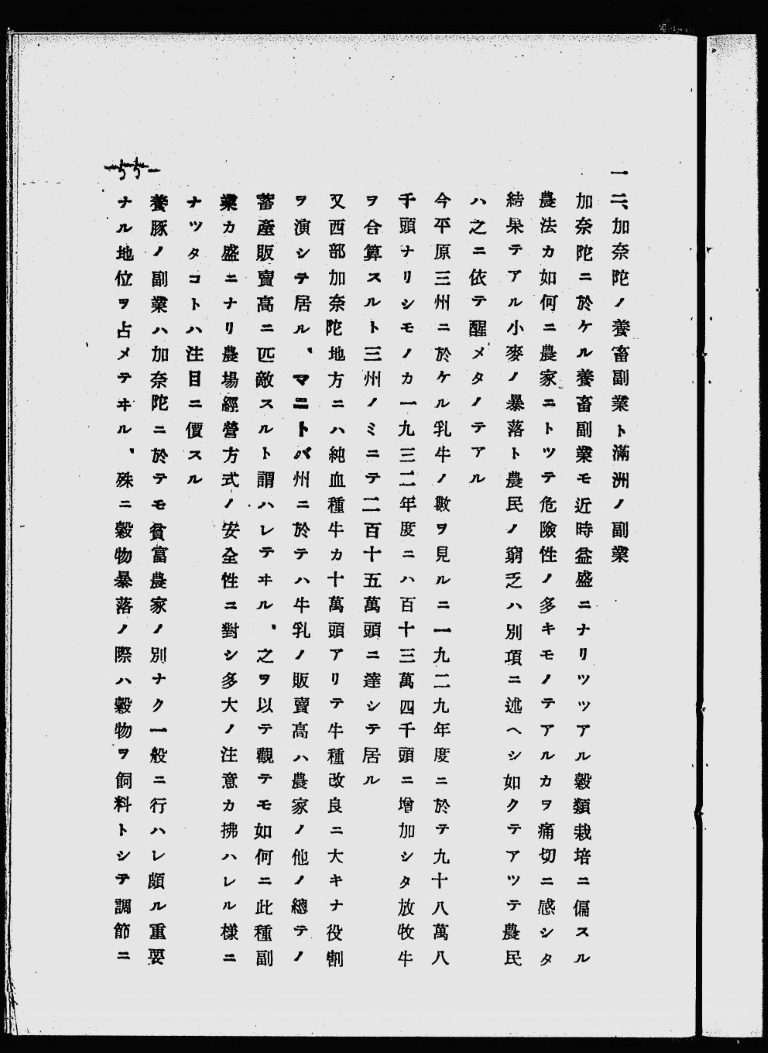 一二、加奈陀ノ養畜副業ト滿洲ノ副業
加奈陀ニ於ケル養畜副業モ近時益盛ニナリツツアル穀類栽培ニ偏スル
農法カ如何ニ農家ニトツテ危險性ノ多キモノテアルカヲ痛切ニ感シタ
結果テアル小麥ノ暴落ト農民ノ窮乏ハ別項ニ述ヘシ如クテアツテ農民
ハ之ニ依テ醒メタノテアル
今平原三州ニ於ケル乳牛ノ數ヲ見ルニ一九二九年度ニ於テ九十八萬八
千頭ナリシモノカ一九三二年度ニハ百十三萬四千頭ニ增加シタ放牧牛
ヲ合算スルト三州ノミニテ二百十五萬頭ニ達シテ居ル
又西部加奈陀地方ニハ純血種牛カ十萬頭アリテ牛種改良ニ大キナ役割
ヲ演シテ居ル、マニトバ州ニ於テハ牛乳ノ販賣高ハ農家ノ他ノ總テノ
蓄產販賣高ニ匹敵スルト謂ハレテヰル、之ヲ以テ觀テモ如何ニ此種副
業カ盛ニナリ農場經營方式ノ安全性ニ對シ多大ノ注意カ拂ハレル樣ニ
ナツタコトハ注目ニ價スル
養豚ノ副業ハ加奈陀ニ於テモ貧富農家ノ別ナク一般ニ行ハレ頗ル重要
ナル地位ヲ占メテヰル、殊ニ穀物暴落ノ際ハ穀物ヲ飼料トシテ調節ニ
55